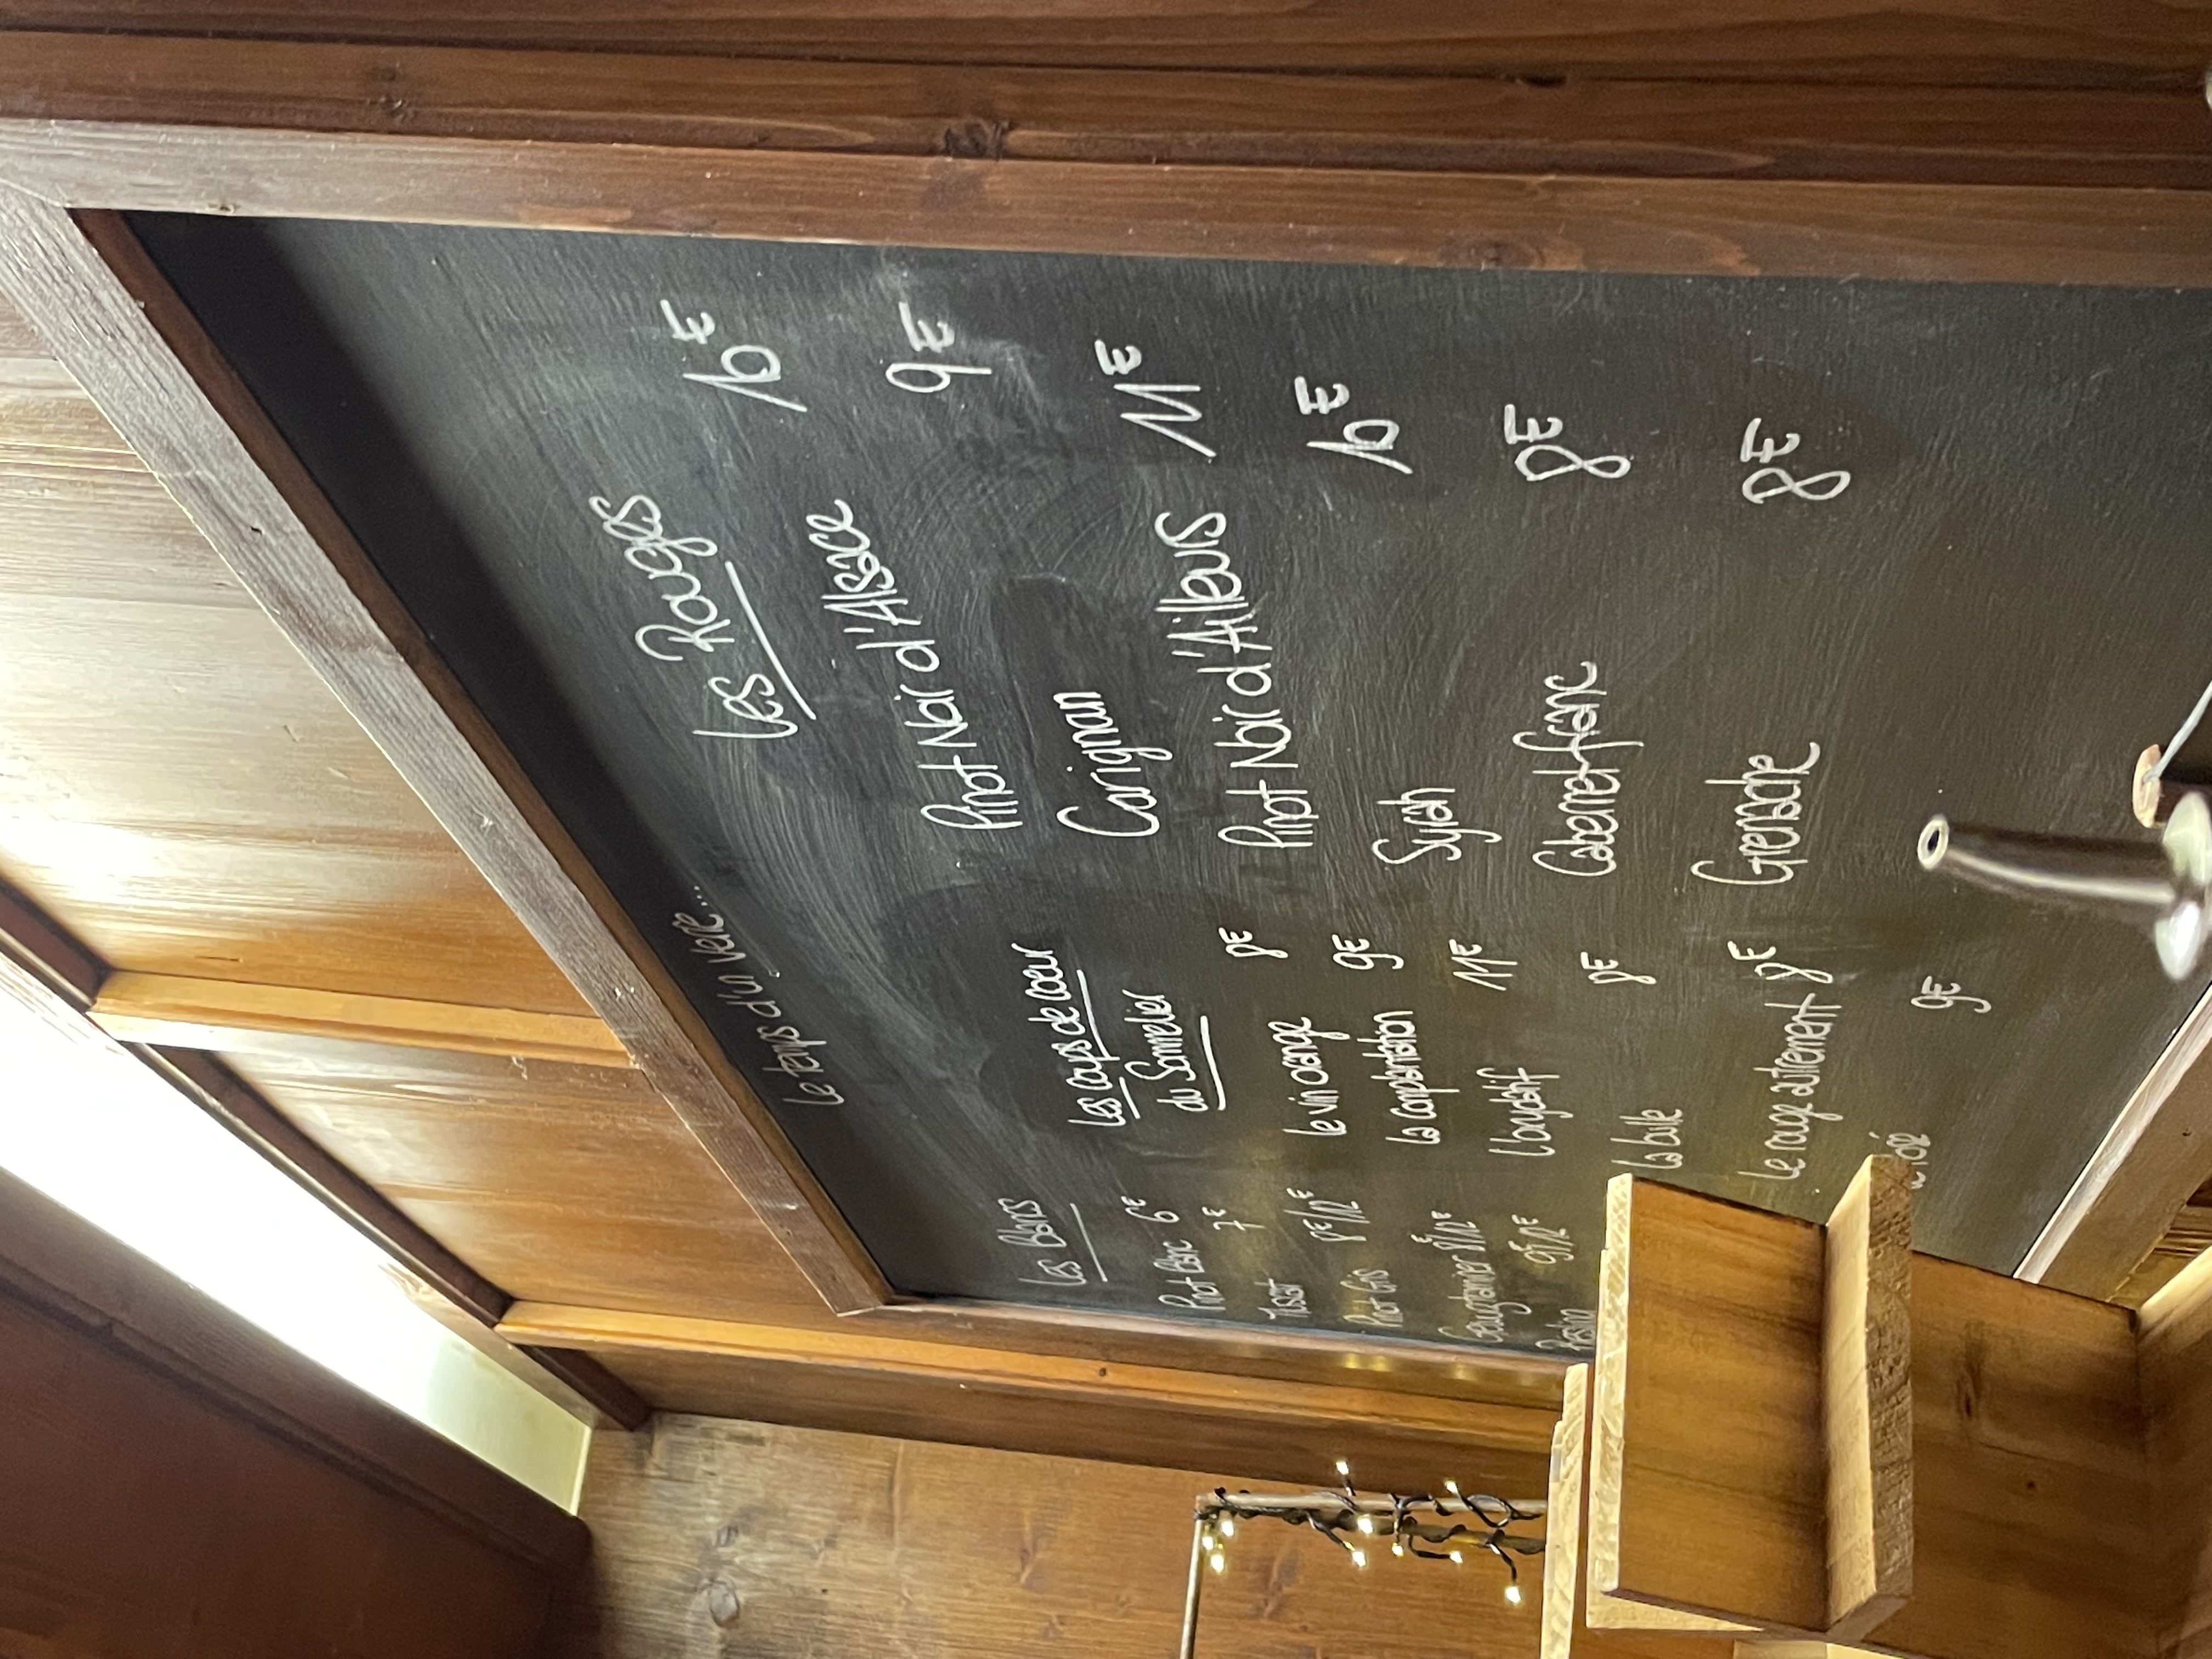 Le temps d'un verre...
Les Blancs
Pinot Blanc 6€
Muscat 7€
Pinot Gris 8€/12€
Gewurztraminer 8€/12€
Riesling 9€/12€
Les coups de coeur
du Sommelier
Le vin orange 8€
La complantation 9€
L'oxydatif 11€
La bulle 8€
Le rouge autrement 8€
Le rosé 9€
Les Rouges
Pinot Noir d'Alsace 10€
Carignan 9€
Pinot Noir d'Ailleurs 11€
Syrah 10€
Cabernet-franc 8€
Grenache 8€